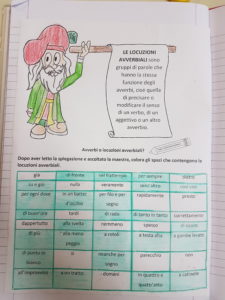 LE LOCUZIONI
AVVERBIALI sono
gruppi di parole che
hanno la stessa
funzione degli
avverbi, cioè quella
di precisare o
modificare il senso
di un verbo, di un
aggettivo o di un
altro avverbio.
Avverbi o locuzioni avverbiali?
Dopo aver letto la spiegazione e ascoltato la maestra, colora gli spazi che contengono le
locuzioni avverbiali.
già di fronte nel frattempo per sempre dietro
su e giù nulla veramente senz'altro così così
per ogni dove in un batter d'occhio per filo e per segno rapidamente presto
di buon'ora tardi di rado di tanto in tanto correttamente
dappertutto alla svelta nemmeno spesso di quando
di più alla meno peggio a rotoli a testa alta a gambe levate
di punto in bianco sì neanche per sogno parecchio non
all'improvviso a un tratto domani in quattro e quattr'otto a catinelle